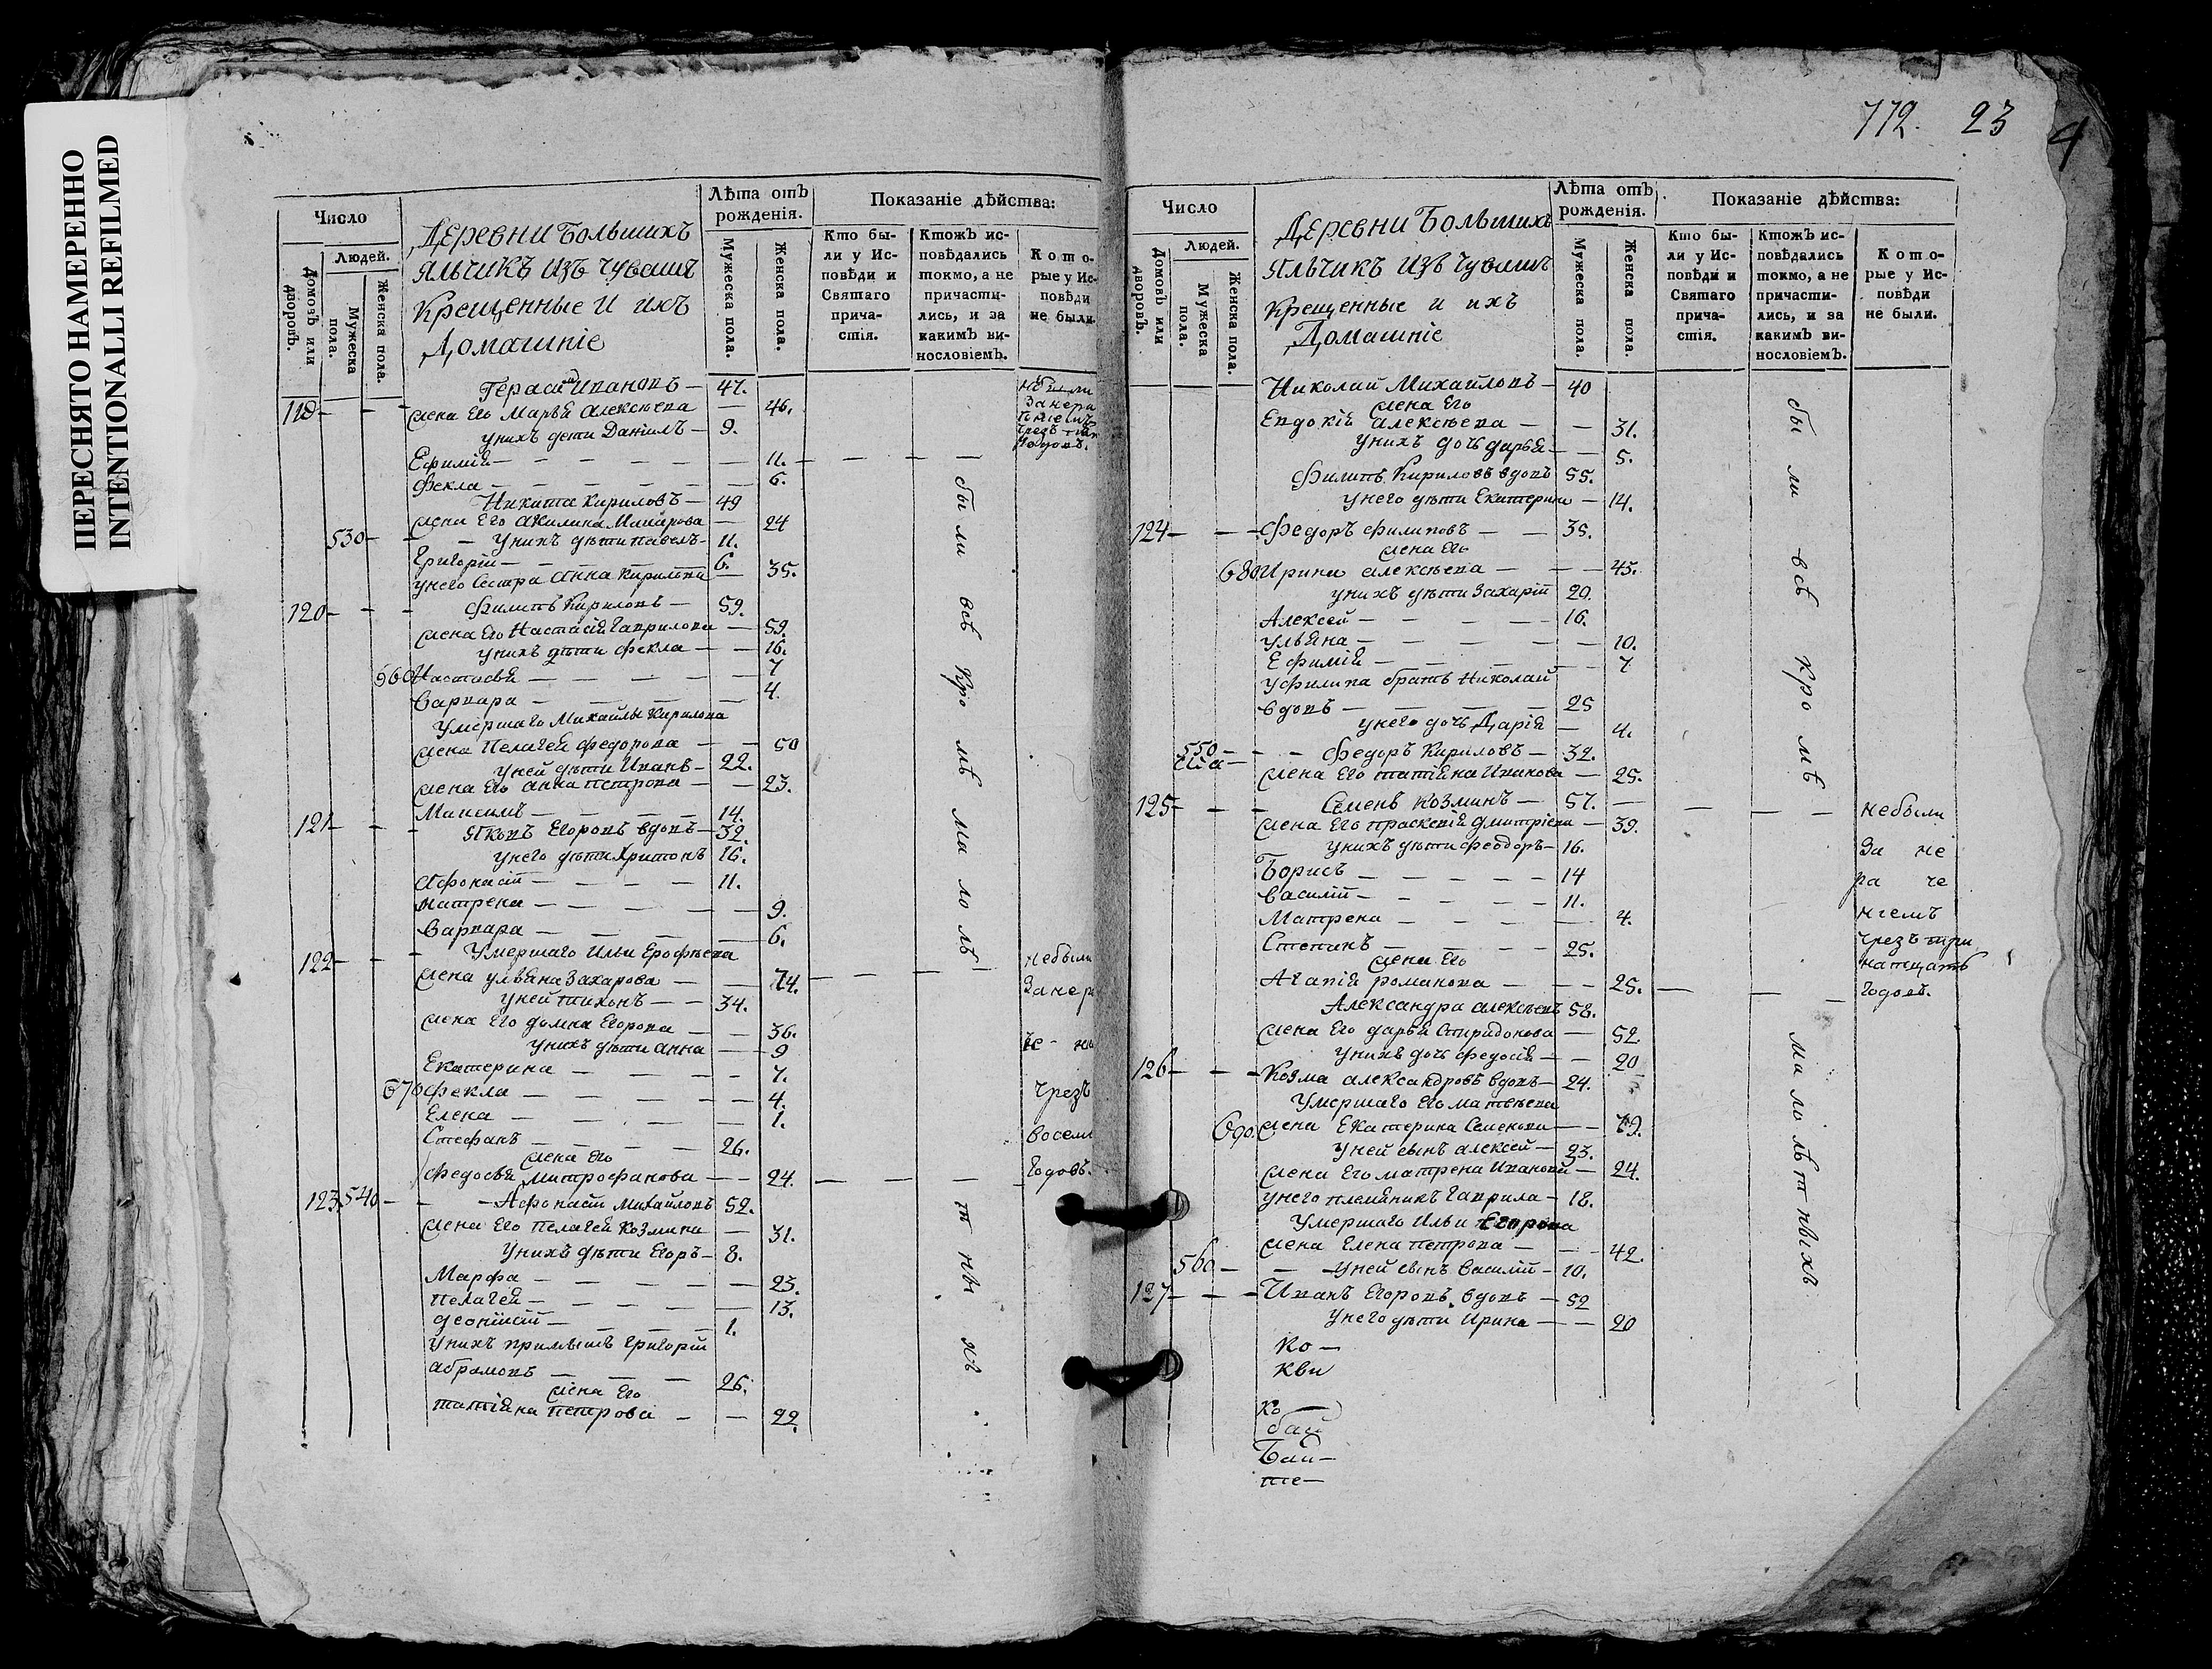 ПЕРЕСНЯТО НАМЕРЕННО
INTENTIONALLI REFILMED
Число
Людей.
Домовъ или дворовъ.
Мужеска пола.
Женска пола.
Деревни Большихъ
Яльчикъ изъ Чувашъ
крещенные и ихъ
Домашніе
Лѣта отъ рожденія.
Мужеска пола.
Женска пола.
Показаніе дѣйства:
Кто были у Исповѣди и Святаго причастія.
Ктожъ исповѣдались токмо, а не причастились, и за какимъ винословіемъ.
Которые у Исповѣди не были.
Герасимъ Ивановъ — 47.
119 — жена Его Марья Алексѣева — 46.
у нихъ дети Даніилъ — 9.
Ефимія — 11.
Фекла — 6.
Никита Кириловъ — 49
жена Его Акилина Макарова — 24
530 — у нихъ дѣти павелъ — 11.
Григорій — 6.
у него Сестра Анна Кирилова — 35.
120 — Филипъ Кириловъ — 59.
жена Его Настасія Гаврилова — 59.
у нихъ дѣти Фекла — 16.
660 Настасья — 7
Варвара — 4.
Умершаго Михайлы Кирилова
жена Пелагея Федорова — 50
у ней дѣти Иванъ — 22.
жена Его Анна петрова — 23.
Максимъ — 14.
121 — Яковъ Егоровъ вдовъ — 32.
у него дѣти Харитонъ 16.
Афонасій — 11.
Матрена — 9.
Варвара — 6.
122 — Умершаго Ильи Ерофѣева
жена ульяна Захарова — 74.
у ней тихонъ — 34.
жена Его домна Егорова — 36.
у нихъ дѣти Анна — 9
Екатерина — 7.
670 Фекла — 4.
Елена — 1.
Стефанъ — 26.
жена Его
Федосья Митрофанова — 24.
123 540 — Афонасій Михайловъ 52.
жена Его Пелагея Козмина — 31.
у нихъ дѣти Егоръ — 8.
Марфа — 23.
Пелагея — 13.
Деонисій — 1.
у нихъ Григорій
Абрамовъ — 26.
жена Его
татіяна петрова — 22.
небыли
за нера
чрезъ
годовъ.
были всѣ кромѣ малолѣтныхъ
небыли
за нера
че - н
чрезъ
восем
годовъ.
772. 23
4
Число
Людей.
Домовъ или дворовъ.
Мужеска пола.
Женска пола.
Деревни Большихъ
Яльчикъ изъ Чувашъ
крещенные и ихъ
Домашніе
Лѣта отъ рожденія.
Мужеска пола.
Женска пола.
Показаніе дѣйства:
Кто были у Исповѣди и Святаго причастія.
Ктожъ исповѣдались токмо, а не причастились, и за какимъ винословіемъ.
Которые у Исповѣди не были.
Николай Михайловъ — 40
жена Его
Евдокія Алексѣева — 31.
у нихъ дочь дарья — 5.
Филипъ Кириловъ вдовъ 55.
у него дѣти Екатерина — 14.
124 — Федоръ Филиповъ — 35.
жена Его
680 Ирина Алексѣева — 45.
у нихъ дѣти Захарій 20.
Алексей — 16.
ульяна — 10.
Ефимія — 7
у Филипа братъ Николай
вдовъ — 25
у него дочь Дарія — 4.
550 — Федоръ Кириловъ — 32.
жена Его татіяна Иванова — 25.
125 — Семенъ Козминъ — 57.
жена Его праскевія дмитріева — 39.
у нихъ дѣти Феодоръ — 16.
Борисъ — 14
Василій — 11.
Матрена — 4.
Степанъ — 25.
жена Его
Агапія романова — 25.
Александра алексѣевъ 58.
жена Его дарья Спиридонова — 52.
у нихъ дочь Федосія — 20
126 — Козма александровъ вдовъ — 24.
Умершаго Егома твѣева
690 жена Екатерина Семенова — 79.
у ней сынъ алексей — 23.
жена Его матрена Иванова — 24.
у него племяникъ Гаврила — 18.
Умершаго Ильи Егорова
жена Елена петрова — 42.
560 — у ней сынъ Василій — 10.
127 — Иванъ Егоровъ вдовъ — 52
у него дѣти Ирина — 20
ко —
кви
ко —
бай
Бай —
те —
были всѣ кромѣ малолѣтныхъ
небыли
за не
ра че
ніемъ
чрезъ три
натцать
годовъ.